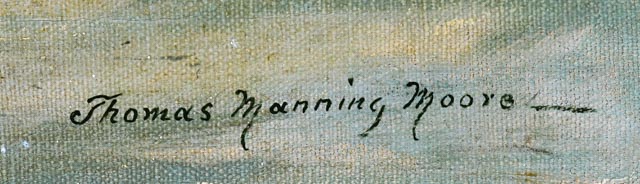 Thomas Manning Moore